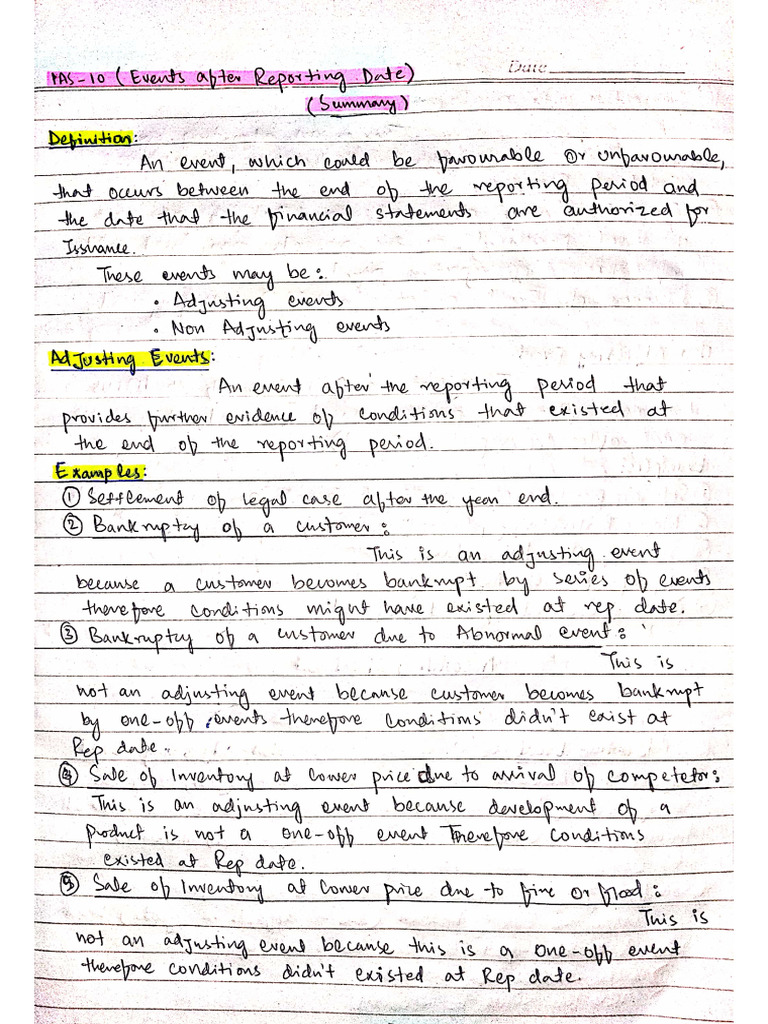 IAS-10 (Events after Reporting Date)
Date
(Summary)
Definition:
An event, which could be favourable or unfavourable,
that occurs between the end of the reporting period and
the date that the financial statements are authorized for
Issuance.
These events may be:
• Adjusting events
• Non Adjusting events
Adjusting Events:
An event after the reporting period that
provides further evidence of conditions that existed at
the end of the reporting period.
Examples:
① Settlement of legal case after the year end.
② Bankruptcy of a customer:
This is an adjusting event
because a customer becomes bankrupt by series of events
therefore conditions might have existed at rep date.
③ Bankruptcy of a customer due to Abnormal event:
This is
not an adjusting event because customer becomes bankrupt
by one-off events therefore conditions didn't exist at
Rep date.
④ Sale of Inventory at lower price due to arrival of competetor:
This is an adjusting event because development of a
product is not a one-off event Therefore conditions
existed at Rep date.
⑤ Sale of Inventory at lower price due to fire or flood:
This is
not an adjusting event because this is a one-off event
therefore conditions didn't existed at Rep date.